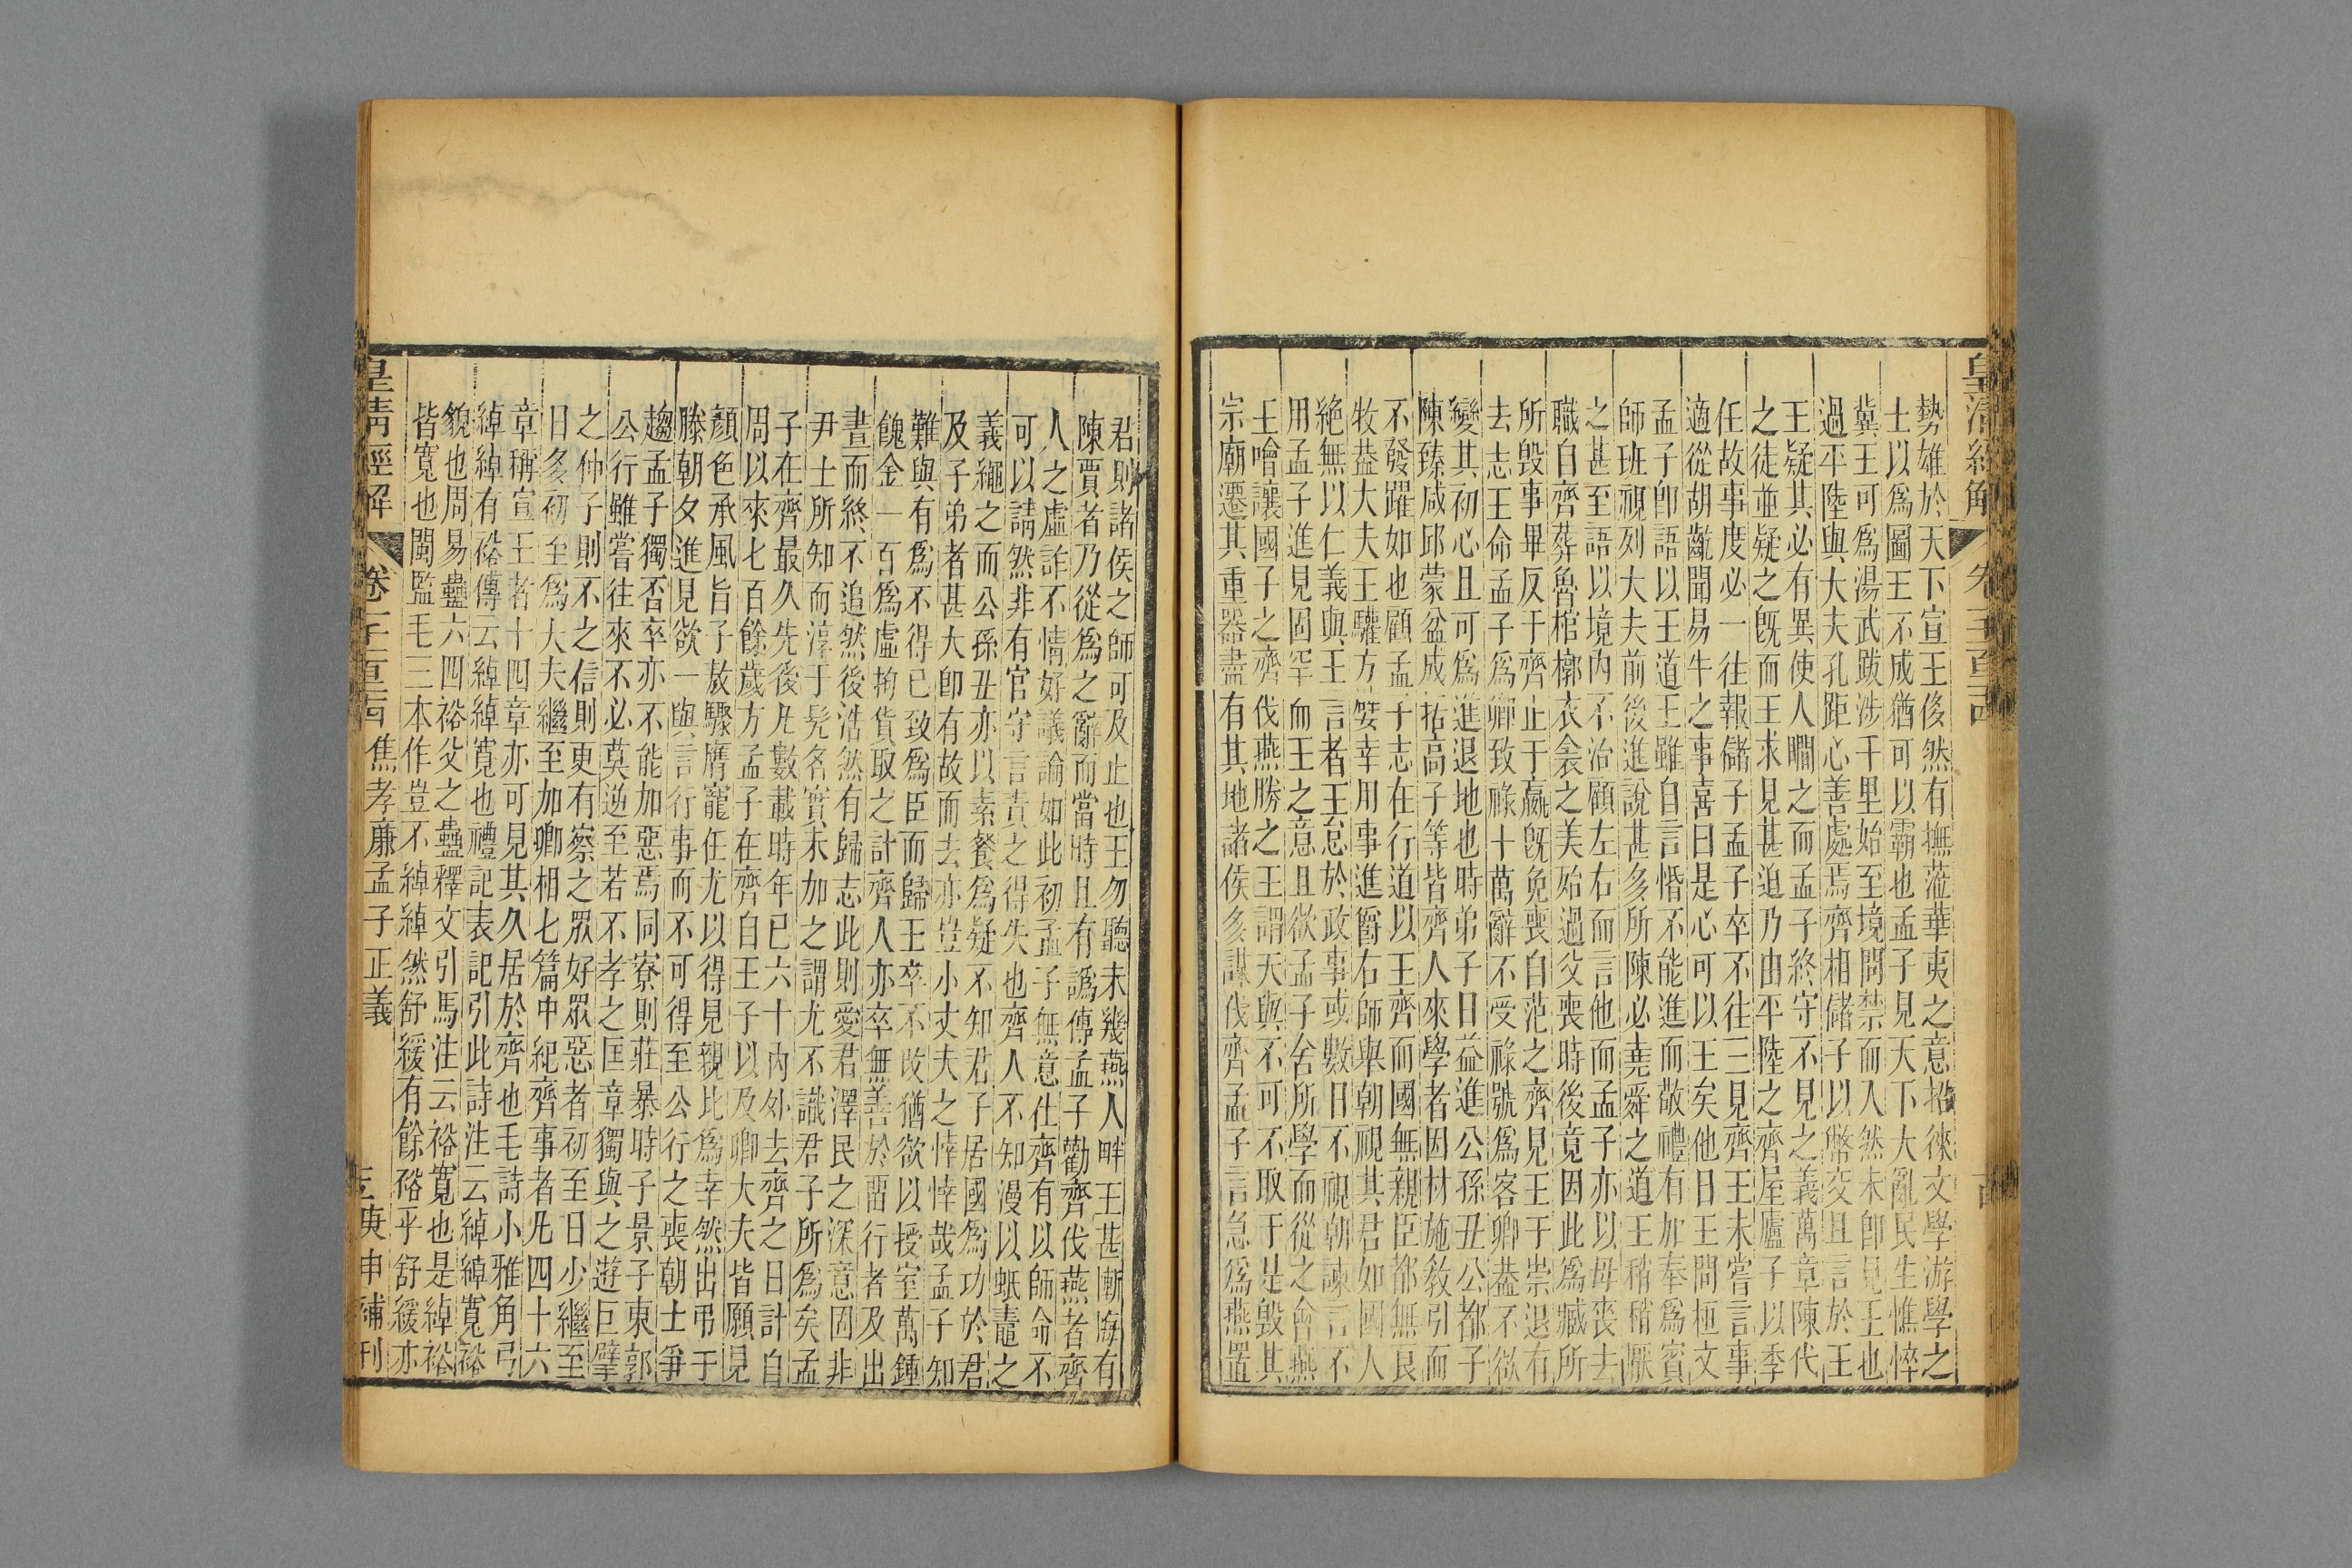 皇清經解
勢雄於天下宣王侈然有撫蒞華夷之意招徠文學游學之
士以爲圖王不成猶可以霸也孟子見天下大亂民生憔悴
冀王可爲湯武跋涉千里始至境問禁而入然未卽見王也
過平陸與大夫孔距心善處焉齊相儲子以幣交且言於王
王疑其必有異使人瞷之而孟子終守不見之義萬章陳代
之徒並疑之旣而王求見甚迫乃由平陸之齊屋廬子以季
任故事度必一往報儲子孟子卒不往三見齊王未嘗言事
適從胡齕聞易牛之事喜曰是心可以王矣他日王問桓文
孟子卽語以王道王雖自言惛不能進而敬禮有加奉爲賓
師班視列大夫前後進說甚多所陳必堯舜之道王稍稍厭
之甚至語以境內不治顧左右而言他而孟子亦以母喪去
職自齊葬魯棺槨衣衾之美殆過父喪時後竟因此爲臧所
所毁事畢反于齊止于嬴旣免喪自范之齊見王于崇退有
去志王命孟子爲卿致祿十萬辭不受祿號爲客卿葢不欲
變其初心且可爲進退地也時弟子日益進公孫丑公都子
陳臻咸邱蒙盆成括高子等皆齊人來學者因材施敎引而
不發躍如也顧孟子志在行道以王齊而國無親臣都無良
牧葢大夫王驩方嬖幸用事進爵右師舉朝視其君如國人
絶無以仁義與王言者王怠於政事或數日不視朝諫言不
用孟子進見固罕而王之意且欲孟子舍所學而從之會燕
王噲讓國子之齊伐燕勝之王謂天與不可不取于是毁其
宗廟遷其重器盡有其地諸侯多謀伐齊孟子言急爲燕置
君則諸侯之師可及止也王勿聽未幾燕人畔王甚慚悔有
陳賈者乃從爲之辭而當時且有譌傳孟子勸齊伐燕者齊
人之虛詐不情好議論如此初孟子無意仕齊有以師命不
可以請然非有官守言責之得失也齊人不知漫以蚳鼃之
義繩之而公孫丑亦以素餐爲疑不知君子居國爲功於君
及子弟者甚大卽有故而去亦豈小丈夫之悻悻哉孟子知
難與有爲不得已致爲臣而歸王卒不改猶欲以授室萬鍾
餽金一百爲虛拘貨取之計齊人亦卒無善於畱行者及出
晝而終不追然後浩然有歸志此則愛君澤民之深意固非
尹士所知而淳于髡名實未加之謂尤不識君子所爲矣孟
子在齊最久先後凡數載時年已六十內外去齊之日計自
周以來七百餘歲方孟子在齊自王子以及卿大夫皆願見
顔色承風旨子敖驟膺寵任尤以得見親比爲幸然出弔于
滕朝夕進見欲一與言行事而不可得至公行之喪朝士爭
趨孟子獨否卒亦不能加惡焉同寮則莊暴時子景子東郭
公行雖嘗往來不必莫逆至若不孝之匡章獨與之遊巨擘
之仲子則不之信則更有察之眾好眾惡者初至日少繼至
日多初至爲大夫繼至加卿相七篇中紀齊事者凡四十六
章稱宣王者十四章亦可見其久居於齊也毛詩小雅角弓
綽綽有裕傳云綽綽寬也禮記表記引此詩注云綽綽寬裕
貌也周易蠱六四裕父之蠱釋文引馬注云裕寬也是綽裕
皆寬也閩監毛三本作豈不綽綽然舒緩有餘裕乎舒緩亦
皇清經解
焦孝廉孟子正義
庚申補刊